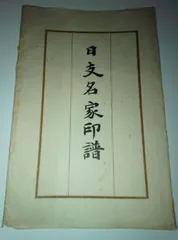 日支名家印譜